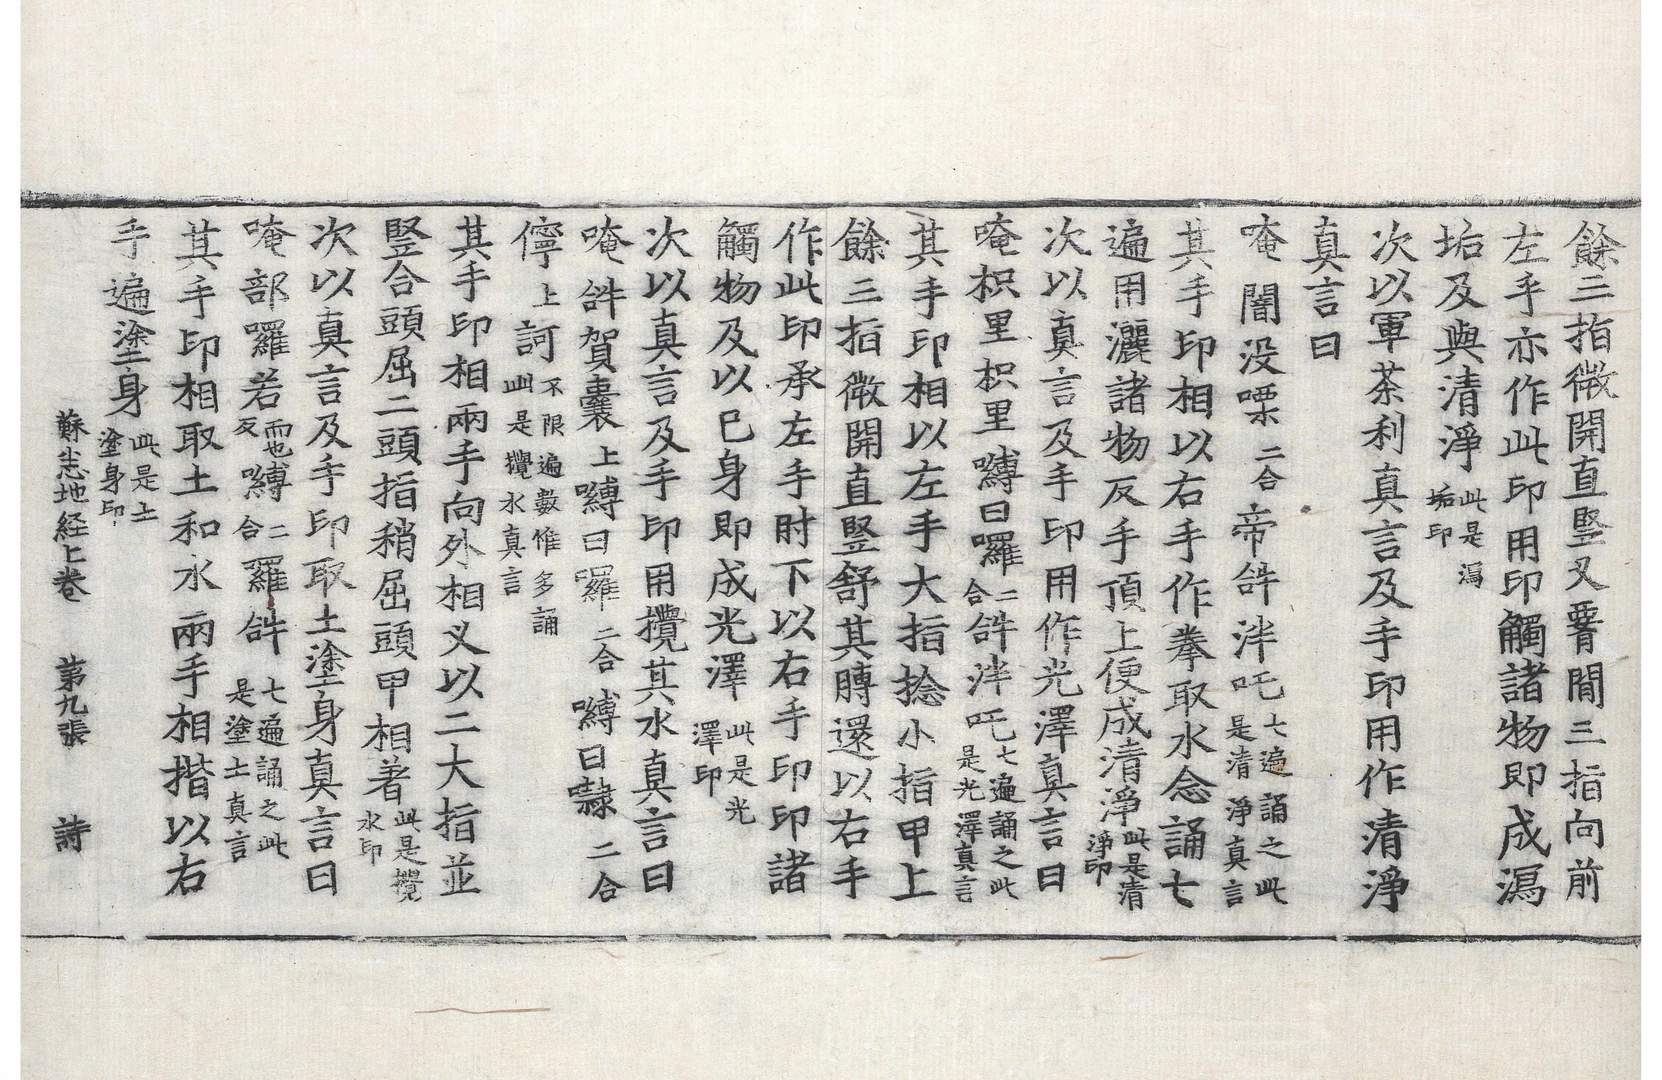 餘三指微開直竪又臂間三指向前
左手亦作此印用印觸諸物即成㵼
垢及與清淨此是㵼垢印
次以軍荼利真言及手印用作清淨
真言曰
唵闇没㗚二合帝合牛泮吒七遍誦之此是清淨真言
其手印相以右手作拳取水念誦七
遍用灑諸物反手頂上便成清淨此是清淨印
次以真言及手印用作光澤真言曰
唵枳里枳里嚩日囉二合𤙖泮吒七遍誦之此是光澤真言
其手印相以左手大指捻小指甲上
餘三指微開直竪舒其膊還以右手
作此印承左手肘下以右手印印諸
觸物及以已身即成光澤此是光澤印
次以真言及手印用攪其水真言曰
唵𤙖賀囊上嚩日囉二合嚩日隸二合
儜上訶不限遍數惟多誦此是攪水真言
其手印相兩手向外相叉以二大指並
竪合頭屈二頭指稍屈頭甲相著此是攪水印
次以真言及手印取土塗身真言曰
唵部囉若而也反嚩二合羅𤙖七遍誦之此是塗土真言
其手印相取土和水兩手相揩以右
手遍塗身此是土塗身印
蘇悉地経上卷　第九張　詩